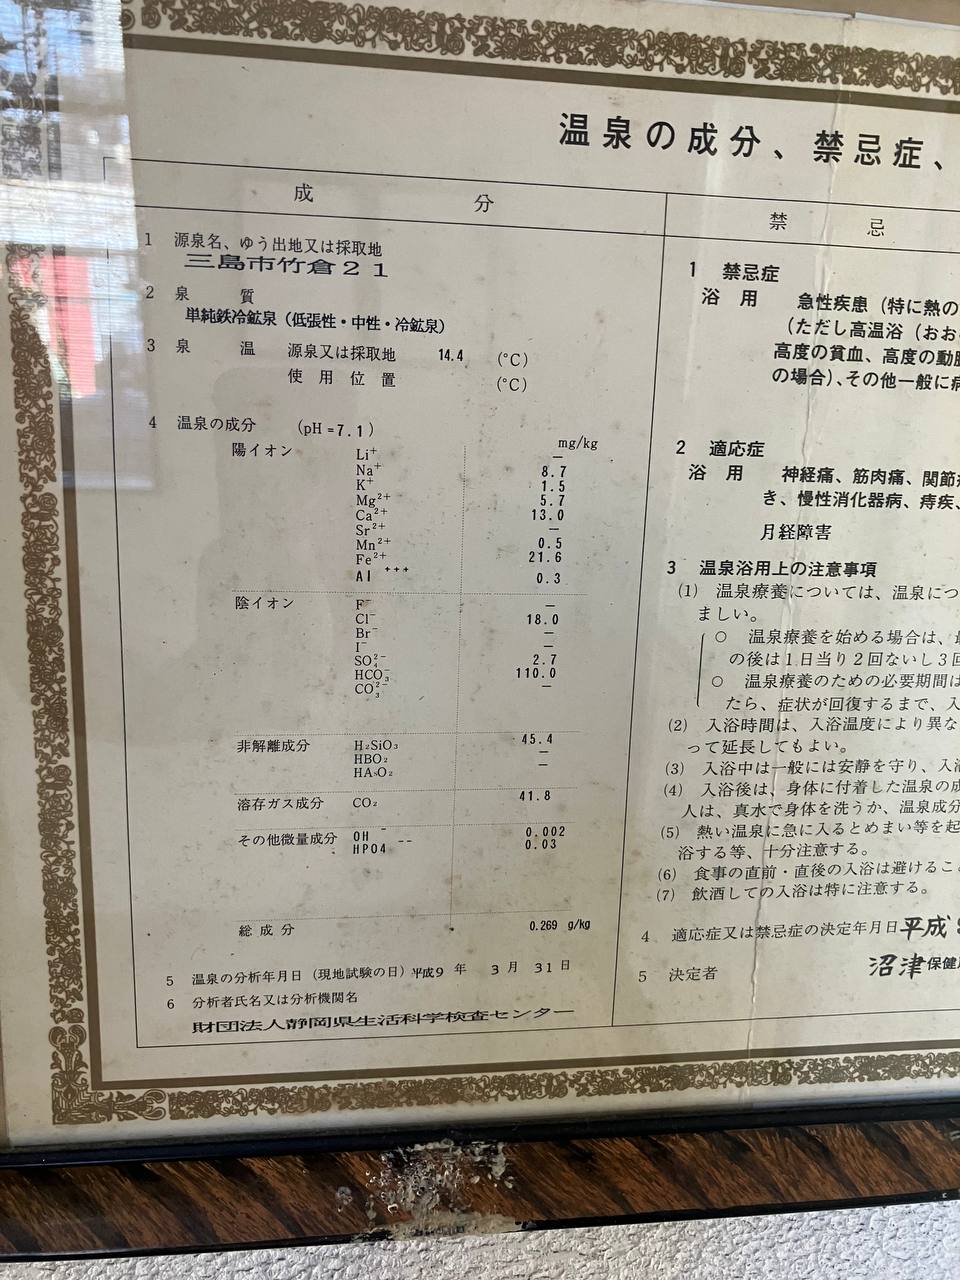 温泉の成分、禁忌症、
成 分
1 源泉名、ゆう出地又は採取地
三島市竹倉21
2 泉 質
単純鉄冷鉱泉（低張性・中性・冷鉱泉）
3 泉 温 源泉又は採取地 14.4 (°C)
使用位置 (°C)
4 温泉の成分 (pH=7.1)
mg/kg
陽イオン Li⁺ —
Na⁺ 8.7
K⁺ 1.5
Mg²⁺ 5.7
Ca²⁺ 13.0
Sr²⁺ —
Mn²⁺ 0.5
Fe²⁺ 21.6
Al⁺⁺⁺ 0.3
陰イオン F⁻ —
Cl⁻ 18.0
Br⁻ —
I⁻ —
SO₄²⁻ 2.7
HCO₃⁻ 110.0
CO₃²⁻ —
非解離成分 H₂SiO₃ 45.4
HBO₂ —
HAsO₂ —
溶存ガス成分 CO₂ 41.8
その他微量成分 OH⁻ 0.002
HPO4-- 0.03
総成分 0.269 g/kg
5 温泉の分析年月日（現地試験の日）平成9年 3月 31日
6 分析者氏名又は分析機関名
財団法人静岡県生活科学検査センター
禁 忌
1 禁忌症
浴用 急性疾患（特に熱の
（ただし高温浴（おお
高度の貧血、高度の動
の場合）、その他一般に病
2 適応症
浴用 神経痛、筋肉痛、関節
き、慢性消化器病、痔疾、
月経障害
3 温泉浴用上の注意事項
(1) 温泉療養については、温泉につ
ましい。
○ 温泉療養を始める場合は、
の後は1日当り2回ないし3回
○ 温泉療養のための必要期間は
たら、症状が回復するまで、入
(2) 入浴時間は、入浴温度により異な
って延長してもよい。
(3) 入浴中は一般には安静を守り、入浴
(4) 入浴後は、身体に付着した温泉の成
人は、真水で身体を洗うか、温泉成分
(5) 熱い温泉に急に入るとめまい等を起
浴する等、十分注意する。
(6) 食事の直前・直後の入浴は避けるこ
(7) 飲酒しての入浴は特に注意する。
4 適応症又は禁忌症の決定年月日 平成
5 決定者 沼津保健